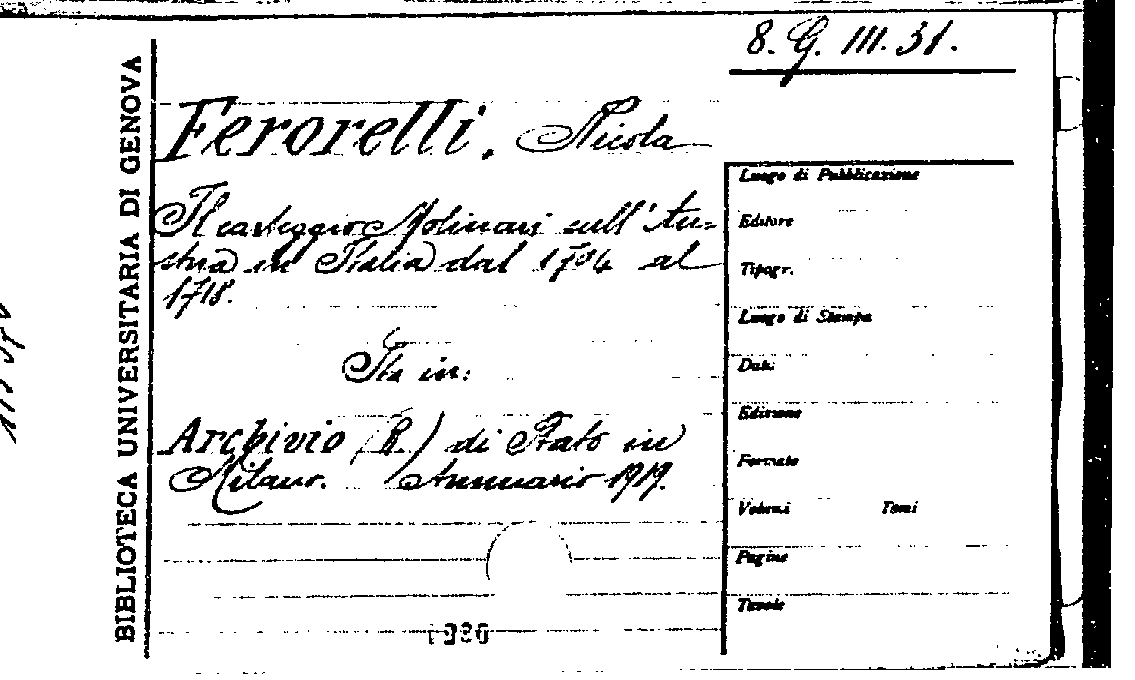 8. G. III. 31.
BIBLIOTECA UNIVERSITARIA DI GENOVA
Ferorelli, Nicola
Il carteggio Molinari sull'Au=
stria in Italia dal 1704 al
1718.
Sta in:
Archivio (R.) di Stato in
Milano. Annuario 1919.
Luogo di Pubblicazione
Editore
Tipogr.
Luogo di Stampa
Data
Edizione
Formato
Volumi Tomi
Pagine
Tavole